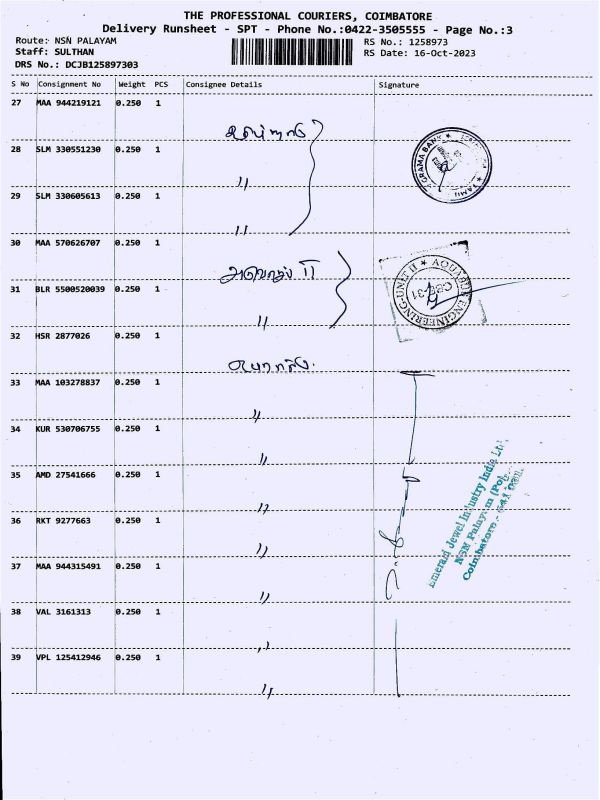 THE PROFESSIONAL COURIERS, COIMBATORE
Delivery Runsheet - SPT - Phone No.:0422-3505555 - Page No.:3
Route: NSN PALAYAM
RS No.: 1258973
Staff: SULTHAN
RS Date: 16-Oct-2023
DRS No.: DCJB125897303
S No Consignment No Weight PCS Consignee Details Signature
27 MAA 944219121 0.250 1
28 SLM 330551230 0.250 1
GRAMA BANK ★ TAMIL
〃
29 SLM 330605613 0.250 1
〃
30 MAA 570626707 0.250 1
II
AQUASUB ENGINEERING-UNIT II ★
CBE-31
31 BLR 5500520039 0.250 1
〃
32 HSR 2877026 0.250 1
33 MAA 103278837 0.250 1
〃
34 KUR 530706755 0.250 1
〃
35 AMD 27541666 0.250 1
〃
36 RKT 9277663 0.250 1
〃
37 MAA 944315491 0.250 1
〃
38 VAL 3161313 0.250 1
〃
39 VPL 125412946 0.250 1
〃
Emerald Jewel Industry India Ltd.,
NSN Palayam (Po),
Coimbatore - 641 031.